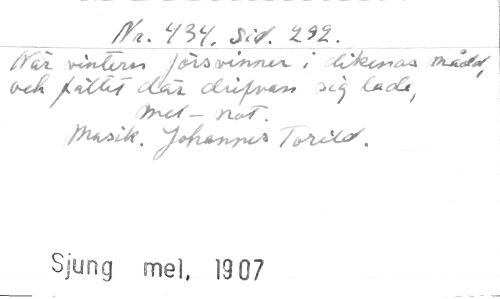 Nr. 434. Sid. 292.
När vintern försvinner i dikenas mådd,
och fältet där drifvan sig lade,
Mel-not.
Musik. Johannes Torild.
Sjung mel. 1907